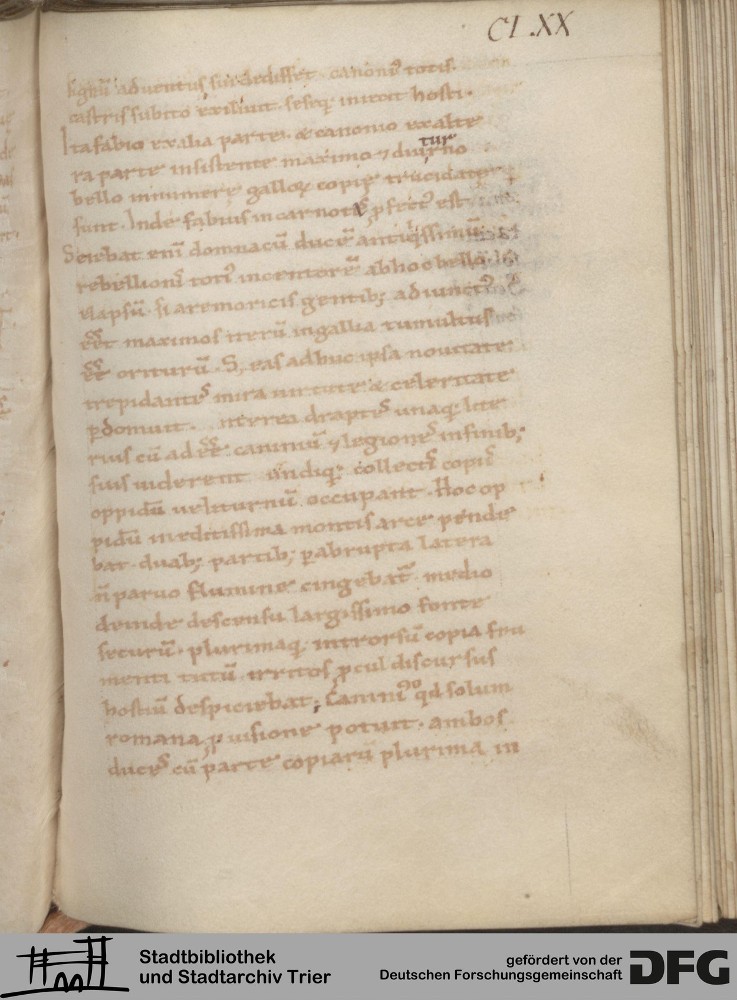 CLXX
signū aduentus sui dedisset. caninius totis
castris subito exiliuit. seseq; inuexit hosti.
Ita fabio ex alia parte. & caninio ex alte
ra parte insistente maximo & diurno
tur
bello innumere gallorꝝ copię trucidate
sunt. Inde fabius in carnotes ꝓfect' est
Sciebat enī domnacū ducē antiq̇ssimū
rebellionis toti' incentorē ab hoc bello
elapsū. si aremoricis gentib; adiunct'
eēt maximos iterū in gallia tumultus
eē oriturū. S; eas adhuc ipsa nouitate
trepidantes mira uirtute & celeritate
ꝑdomuit. nterea draptes unaq; lite
rius cū adeē caniniū & legiones in finib;
suis uiderent undiq; collectis copiis
oppidū uelturnū occupant. Hoc op
pidū in editissima montis arce pende
bat. duab; partib; ꝑ abrupta latera
ñ paruo flumine cingebat̃. medio
deinde descensu largissimo fonte
securū. plurimaq; introrsū copia fru
menti tutū irritos ꝓcul discursus
hostiū despiciebat; Canini' qd solum
romana ꝓuisione potuit. ambos
duces cū parte copiarū plurima in
Stadtbibliothek
und Stadtarchiv Trier
gefördert von der
Deutschen Forschungsgemeinschaft
DFG